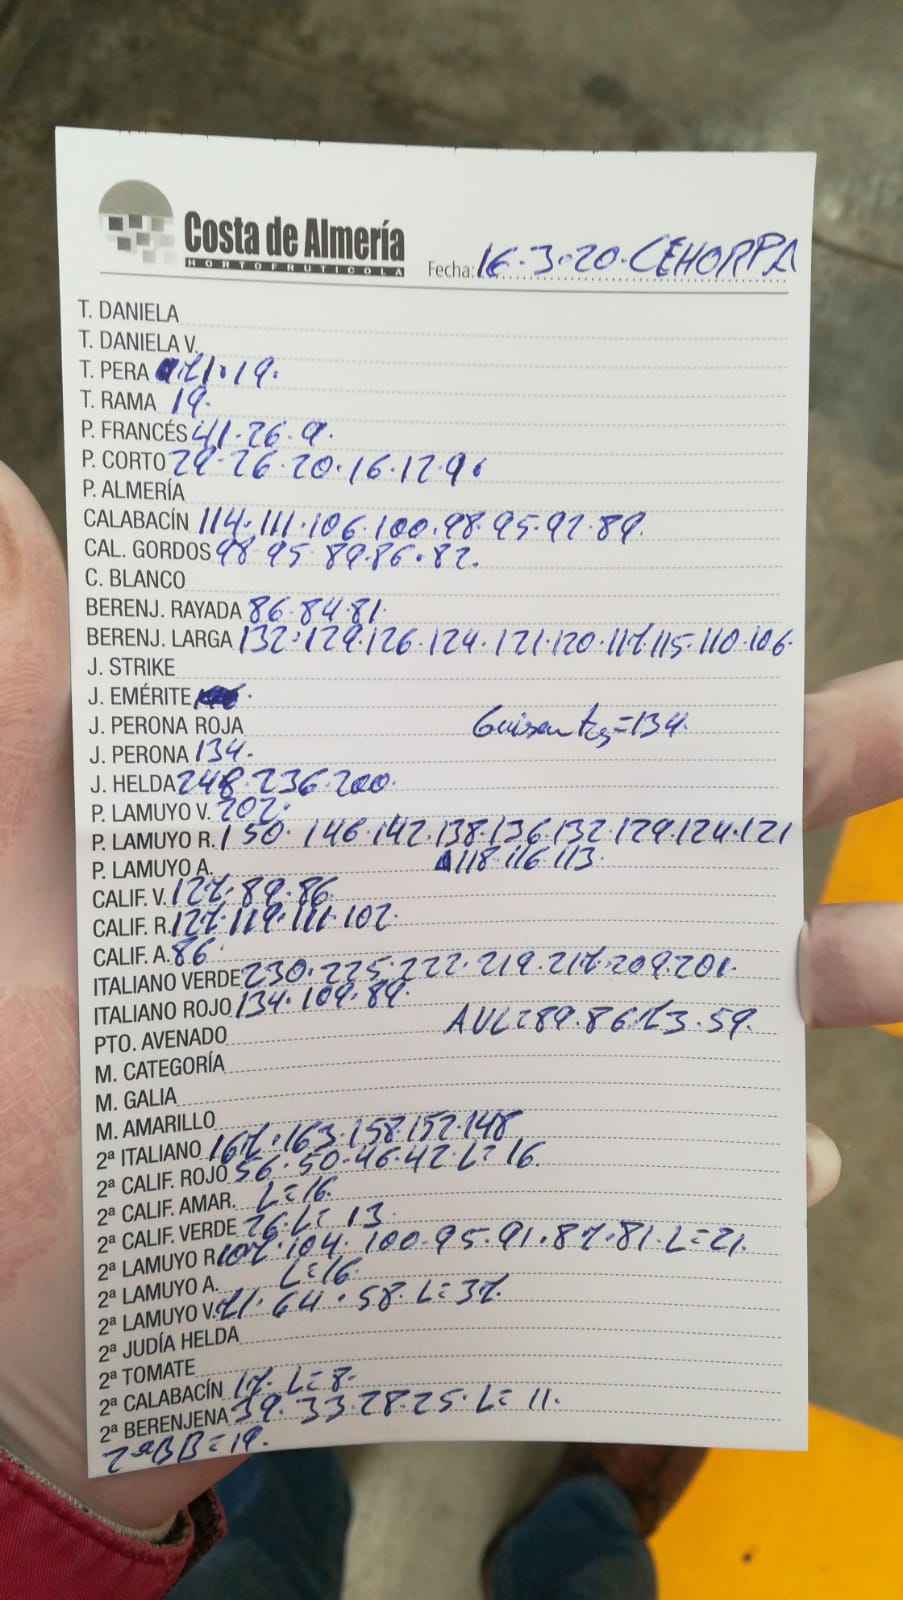 Costa de Almería
HORTOFRUTICOLA
Fecha: 16.3.20. CEHORPA
T. DANIELA
T. DANIELA V.
T. PERA 71.19.
T. RAMA 19.
P. FRANCÉS 41.26.9.
P. CORTO 29.26.20.16.12.9.
P. ALMERÍA
CALABACÍN 114.111.106.100.98.95.92.89.
CAL. GORDOS 98.95.89.86.82.
C. BLANCO
BERENJ. RAYADA 86.84.81.
BERENJ. LARGA 132.129.126.124.121.120.117.115.110.106.
J. STRIKE
J. EMÉRITE
J. PERONA ROJA
J. PERONA 134.
J. HELDA 248.236.200.
P. LAMUYO V. 202.
P. LAMUYO R. 150.146.142.138.136.132.129.124.121
P. LAMUYO A. 118.116.113.
CALIF. V. 127.89.86
CALIF. R. 127.119.111.102.
CALIF. A. 86
ITALIANO VERDE 230.225.222.219.217.209.201.
ITALIANO ROJO 134.109.89.
PTO. AVENADO AVL=89.86.73.59.
M. CATEGORÍA
M. GALIA
M. AMARILLO
2ª ITALIANO 167.163.158.152.148
2ª CALIF. ROJO 56.50.46.42.L=16.
2ª CALIF. AMAR. L=16.
2ª CALIF. VERDE 26.L=13
2ª LAMUYO R. 107.104.100.95.91.87.81.L=21.
2ª LAMUYO A. L=16
2ª LAMUYO V. 71.64.58.L=37.
2ª JUDÍA HELDA
2ª TOMATE
2ª CALABACÍN 17.L=8.
2ª BERENJENA 39.33.28.25.L=11.
2ªBB=19.